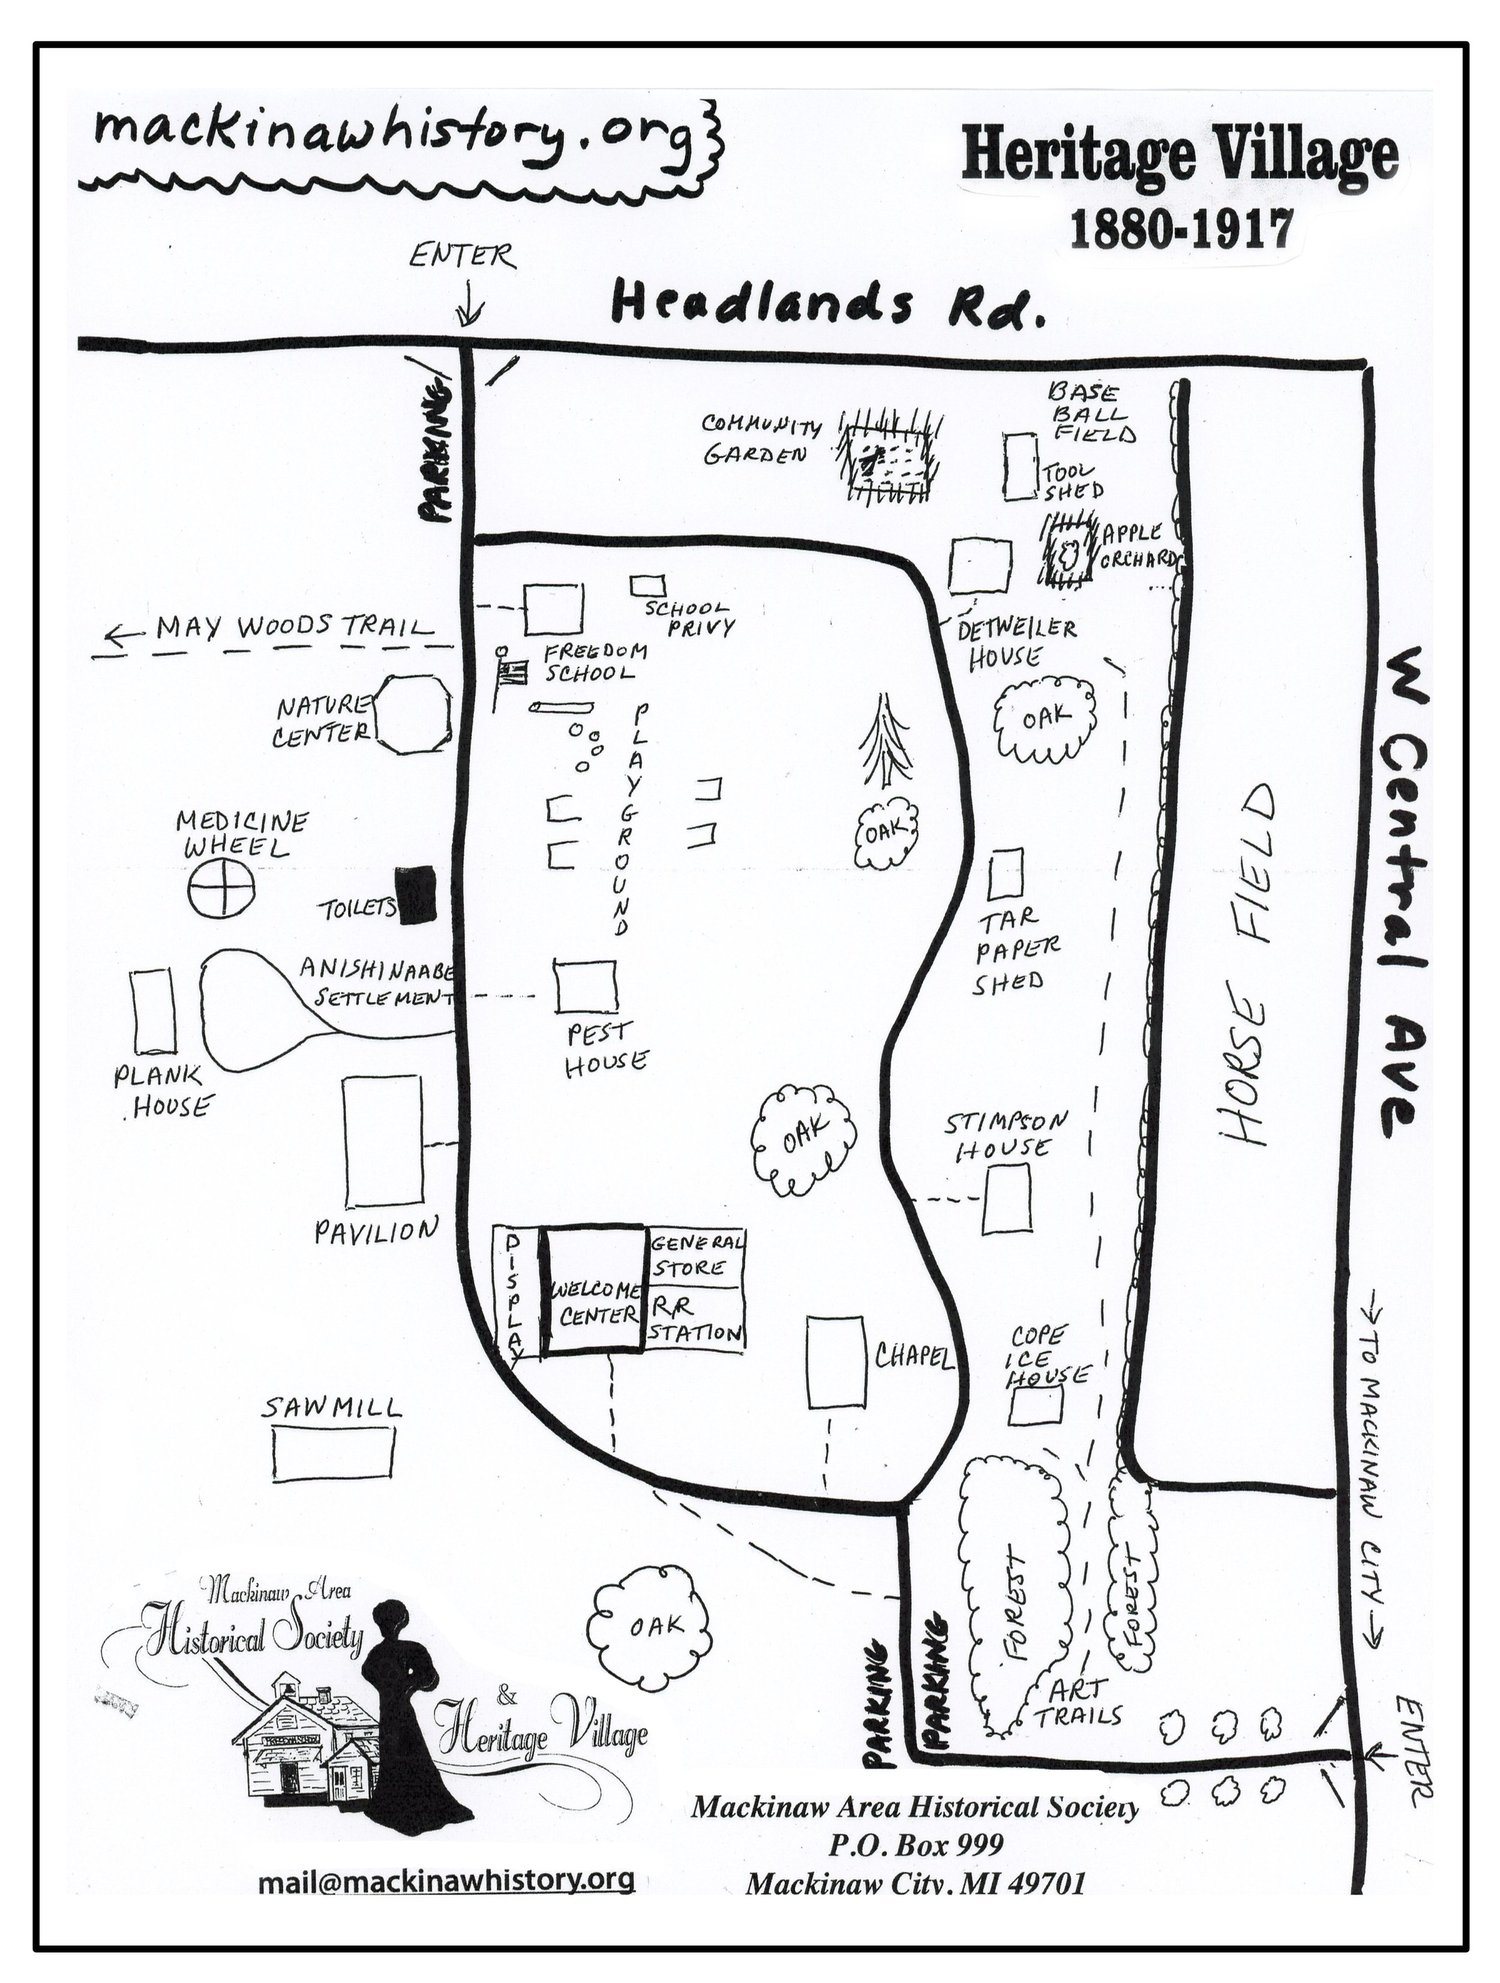 mackinawhistory.org
Heritage Village
1880-1917
ENTER
Headlands Rd.
PARKING
COMMUNITY
GARDEN
BASE
BALL
FIELD
TOOL
SHED
APPLE
ORCHARD
DETWEILER
HOUSE
SCHOOL
PRIVY
FREEDOM
SCHOOL
MAY WOODS TRAIL
NATURE
CENTER
PLAYGROUND
OAK
OAK
W Central Ave
HORSE FIELD
MEDICINE
WHEEL
TOILETS
TAR
PAPER
SHED
ANISHINAABE
SETTLEMENT
PLANK
HOUSE
PEST
HOUSE
OAK
STIMPSON
HOUSE
PAVILION
DISPLAY
WELCOME
CENTER
GENERAL
STORE
RR
STATION
CHAPEL
COPE
ICE
HOUSE
SAWMILL
TO MACKINAW CITY
FOREST
FOREST
OAK
PARKING
PARKING
ART
TRAILS
ENTER
Mackinaw Area
Historical Society
&
Heritage Village
mail@mackinawhistory.org
Mackinaw Area Historical Society
P.O. Box 999
Mackinaw City. MI 49701